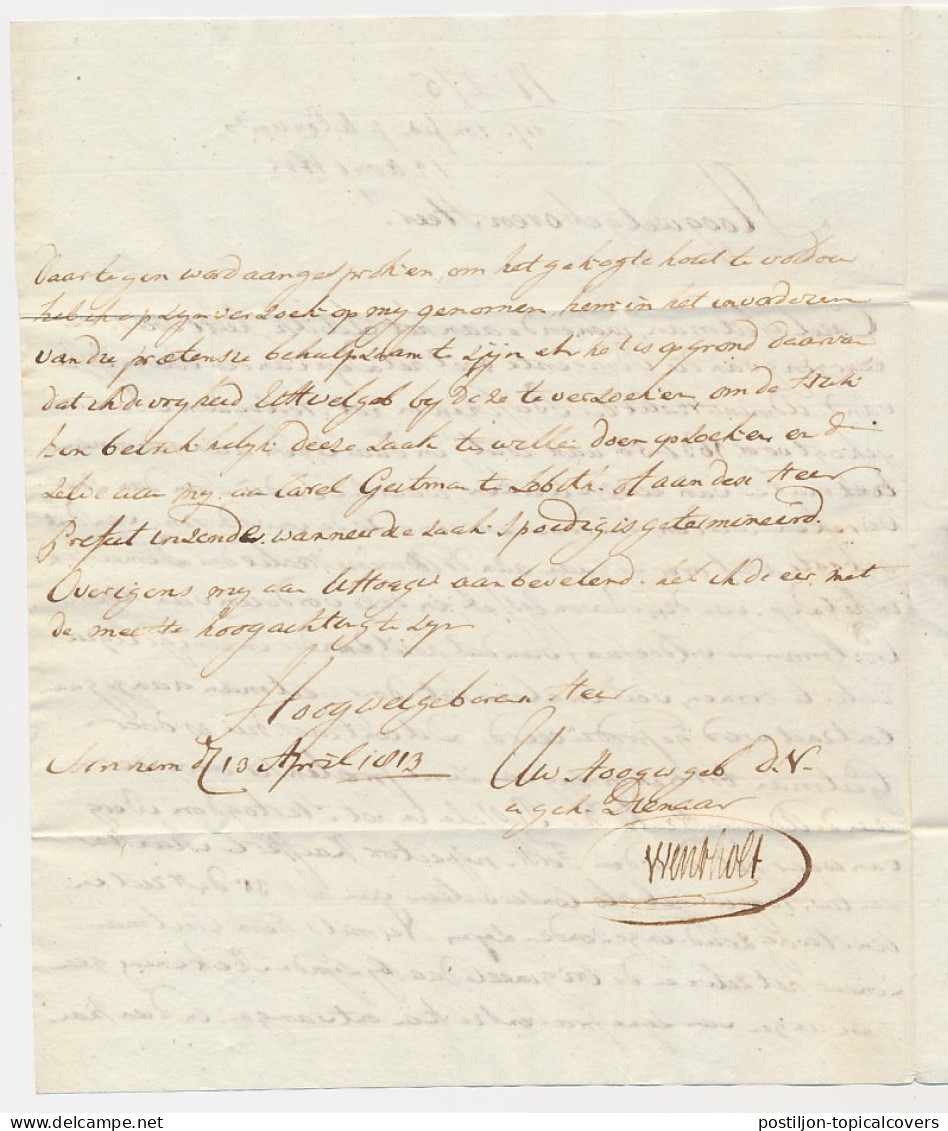 daartegen word aangesproken, om het gekogte hout te voldoen
heb ik op zyn verzoek op my genomen, hem in het invorderen
van die prætensie behulpzaam te zijn en het is op grond daarvan
dat ik de vryheid UHWelgeb by deze te verzoeken om de stuk-
ken betrekkelyk deeze zaak te wille doen opzoeken en de
zelve aan my, aan Carel Geelman te Lobith of aan den Heer
Prefect inzenden, wanneer de zaak spoedig is getermineerd.
Overigens my aan UHoogw aanbevelend heb ik de eer, met
de meeste hoogachting te zyn
Hoogwelgeboren Heer
Arnhem d 13 April 1813
Uw Hoogwgeb D.V.
Dienaar
Wentholt
postiljon-topicalcovers